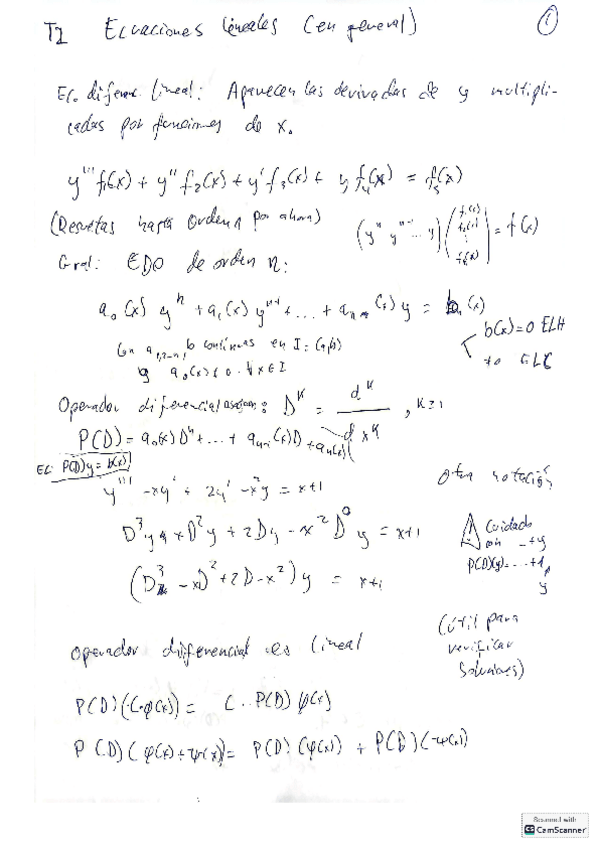 T2 Ecuaciones lineales (en general) 1
Ec. diferen. lineal: Aparecen las derivadas de y multipli-
cadas por funciones de x.
y''' f₁(x) + y'' f₂(x) + y' f₃(x) + y f₄(x) = f₅(x)
(Resueltas hasta orden n por ahora)
(yⁿ yⁿ⁻¹ ... y) (f₁(x) f₂(x) ⋮ fₙ(x)) = f(x)
Gral: EDO de orden n:
a₀(x) yⁿ + a₁(x) yⁿ⁻¹ + ... + aₙ(x) y = b(x)
b(x) = 0 ELH
≠0 ELC
Con b continuas en I = (a,b)
y a₀(x) ≠ 0 ∀x ∈ I
Operador diferencial Dᴷ = dᴷ / dxᴷ , K≥1
P(D) = a₀(x)Dⁿ + ... + aₙ₋₁(x)D + aₙ(x)
EC: P(D)y = b(x)
y''' - xy'' + 2y' - x²y = x+1
Otra notación
D³y - xD²y + 2Dy - x²D⁰y = x+1
Cuidado
con -+y
P(D)(y) = ...+1
y
(D³ - xD² + 2D - x²) y = x+1
Operador diferencial es lineal
(útil para
verificar
soluciones)
P(D)(C·φ(x)) = C·P(D) φ(x)
P(D)(φ(x) + ψ(x)) = P(D)(φ(x)) + P(D)(ψ(x))
Scanned with
CS CamScanner